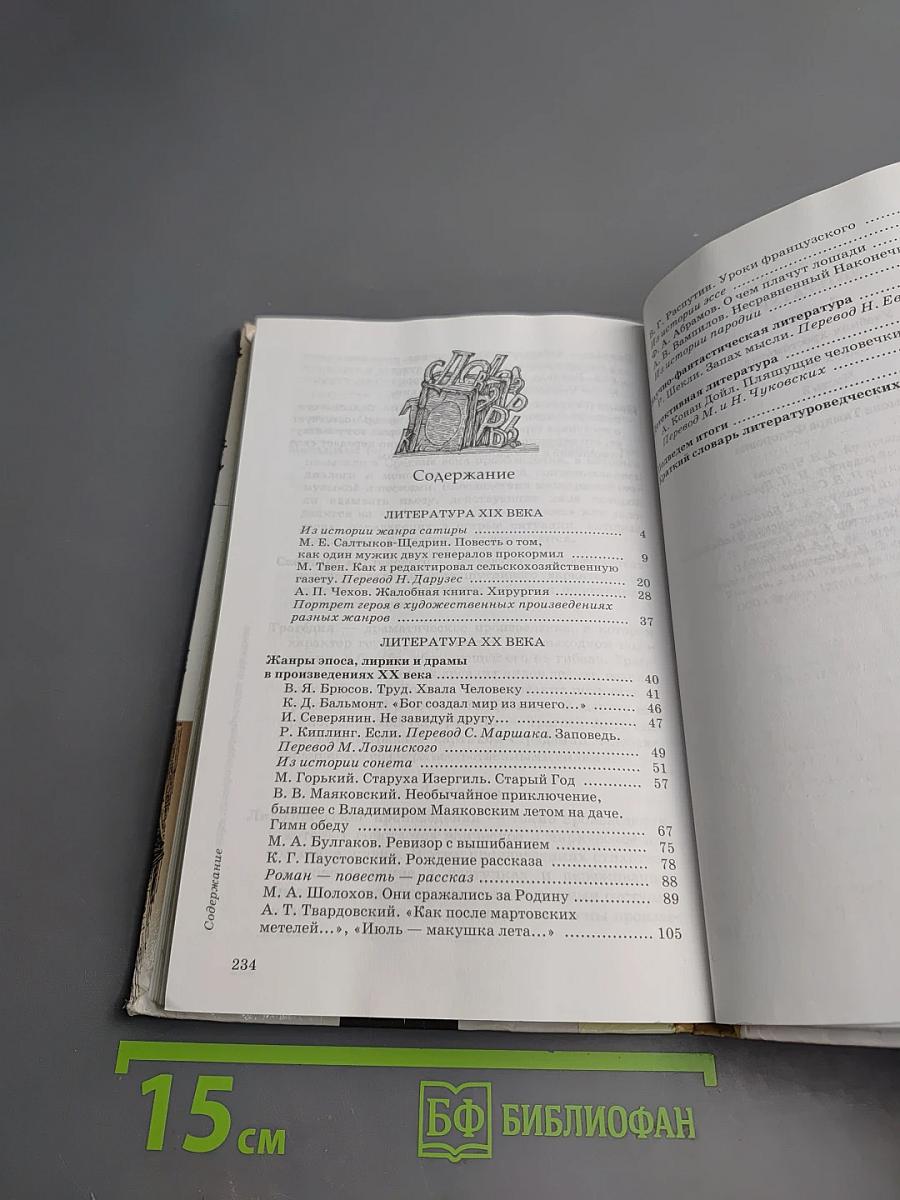 Содержание
ЛИТЕРАТУРА XIX ВЕКА
Из истории жанра сатиры ........................ 4
М. Е. Салтыков-Щедрин. Повесть о том,
как один мужик двух генералов прокормил ............ 9
М. Твен. Как я редактировал сельскохозяйственную
газету. Перевод Н. Дарузес ........................ 20
А. П. Чехов. Жалобная книга. Хирургия ............ 28
Портрет героя в художественных произведениях
разных жанров ........................ 37
ЛИТЕРАТУРА XX ВЕКА
Жанры эпоса, лирики и драмы
в произведениях XX века ........................ 40
В. Я. Брюсов. Труд. Хвала Человеку ............ 41
К. Д. Бальмонт. «Бог создал мир из ничего...» ........ 46
И. Северянин. Не завидуй другу... ............ 47
Р. Киплинг. Если. Перевод С. Маршака. Заповедь.
Перевод М. Лозинского ........................ 49
Из истории сонета ........................ 51
М. Горький. Старуха Изергиль. Старый Год ............ 57
В. В. Маяковский. Необычайное приключение,
бывшее с Владимиром Маяковским летом на даче.
Гимн обеду ........................ 67
М. А. Булгаков. Ревизор с вышибанием ............ 75
К. Г. Паустовский. Рождение рассказа ............ 78
Роман — повесть — рассказ ........................ 88
М. А. Шолохов. Они сражались за Родину ............ 89
А. Т. Твардовский. «Как после мартовских
метелей...», «Июль — макушка лета...» ............ 105
Содержание
234
В. Г. Распутин. Уроки французского
Из истории эссе
Ф. А. Абрамов. О чем плачут лошади
А. В. Вампилов. Несравненный
Из истории пародии
литература
Р. Шекли. Запах мысли. Перевод Н.
литература
А. Конан Дойл. Пляшущие человечки
Перевод М. и Н. Чуковских
итоги
словарь литературоведческих
15 см
БФ БИБЛИОФАН